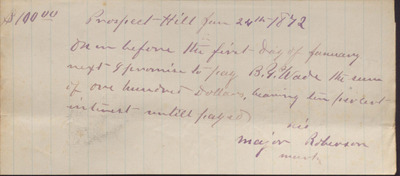 $100.00
Prospect Hill June 24th 1872
On or before the first day of January
next I promise to pay B.G. Wade the sum
of one hundred Dollars, bearing ten per cent
interest untill payed
his
Major Roberson
mark